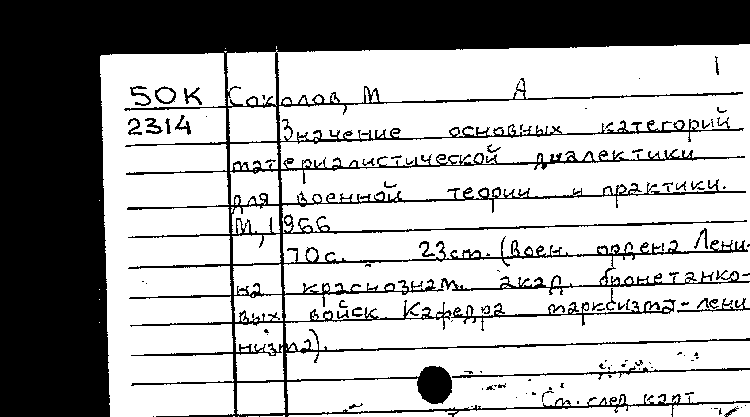 1
50К Соколов, М А
2314 Значение основных категорий
материалистической диалектики
для военной теории и практики.
М., 1966
70с. 23см. (Воен. ордена Лени-
на краснознам. акад. бронетанко-
вых войск. Кафедра марксизма-лени
низма).
См. след карт